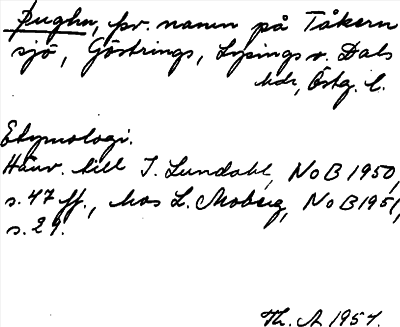 þughn, fsv. namn på Tåkern
sjö, Göstrings, Lysings o. Dals
hdr, Östg. l.
Etymologi.
Hänv. till I. Lundahl, NoB 1950,
s. 47 ff., hos L. Moberg, NoB 1951,
s. 29.
Th. A 1957.